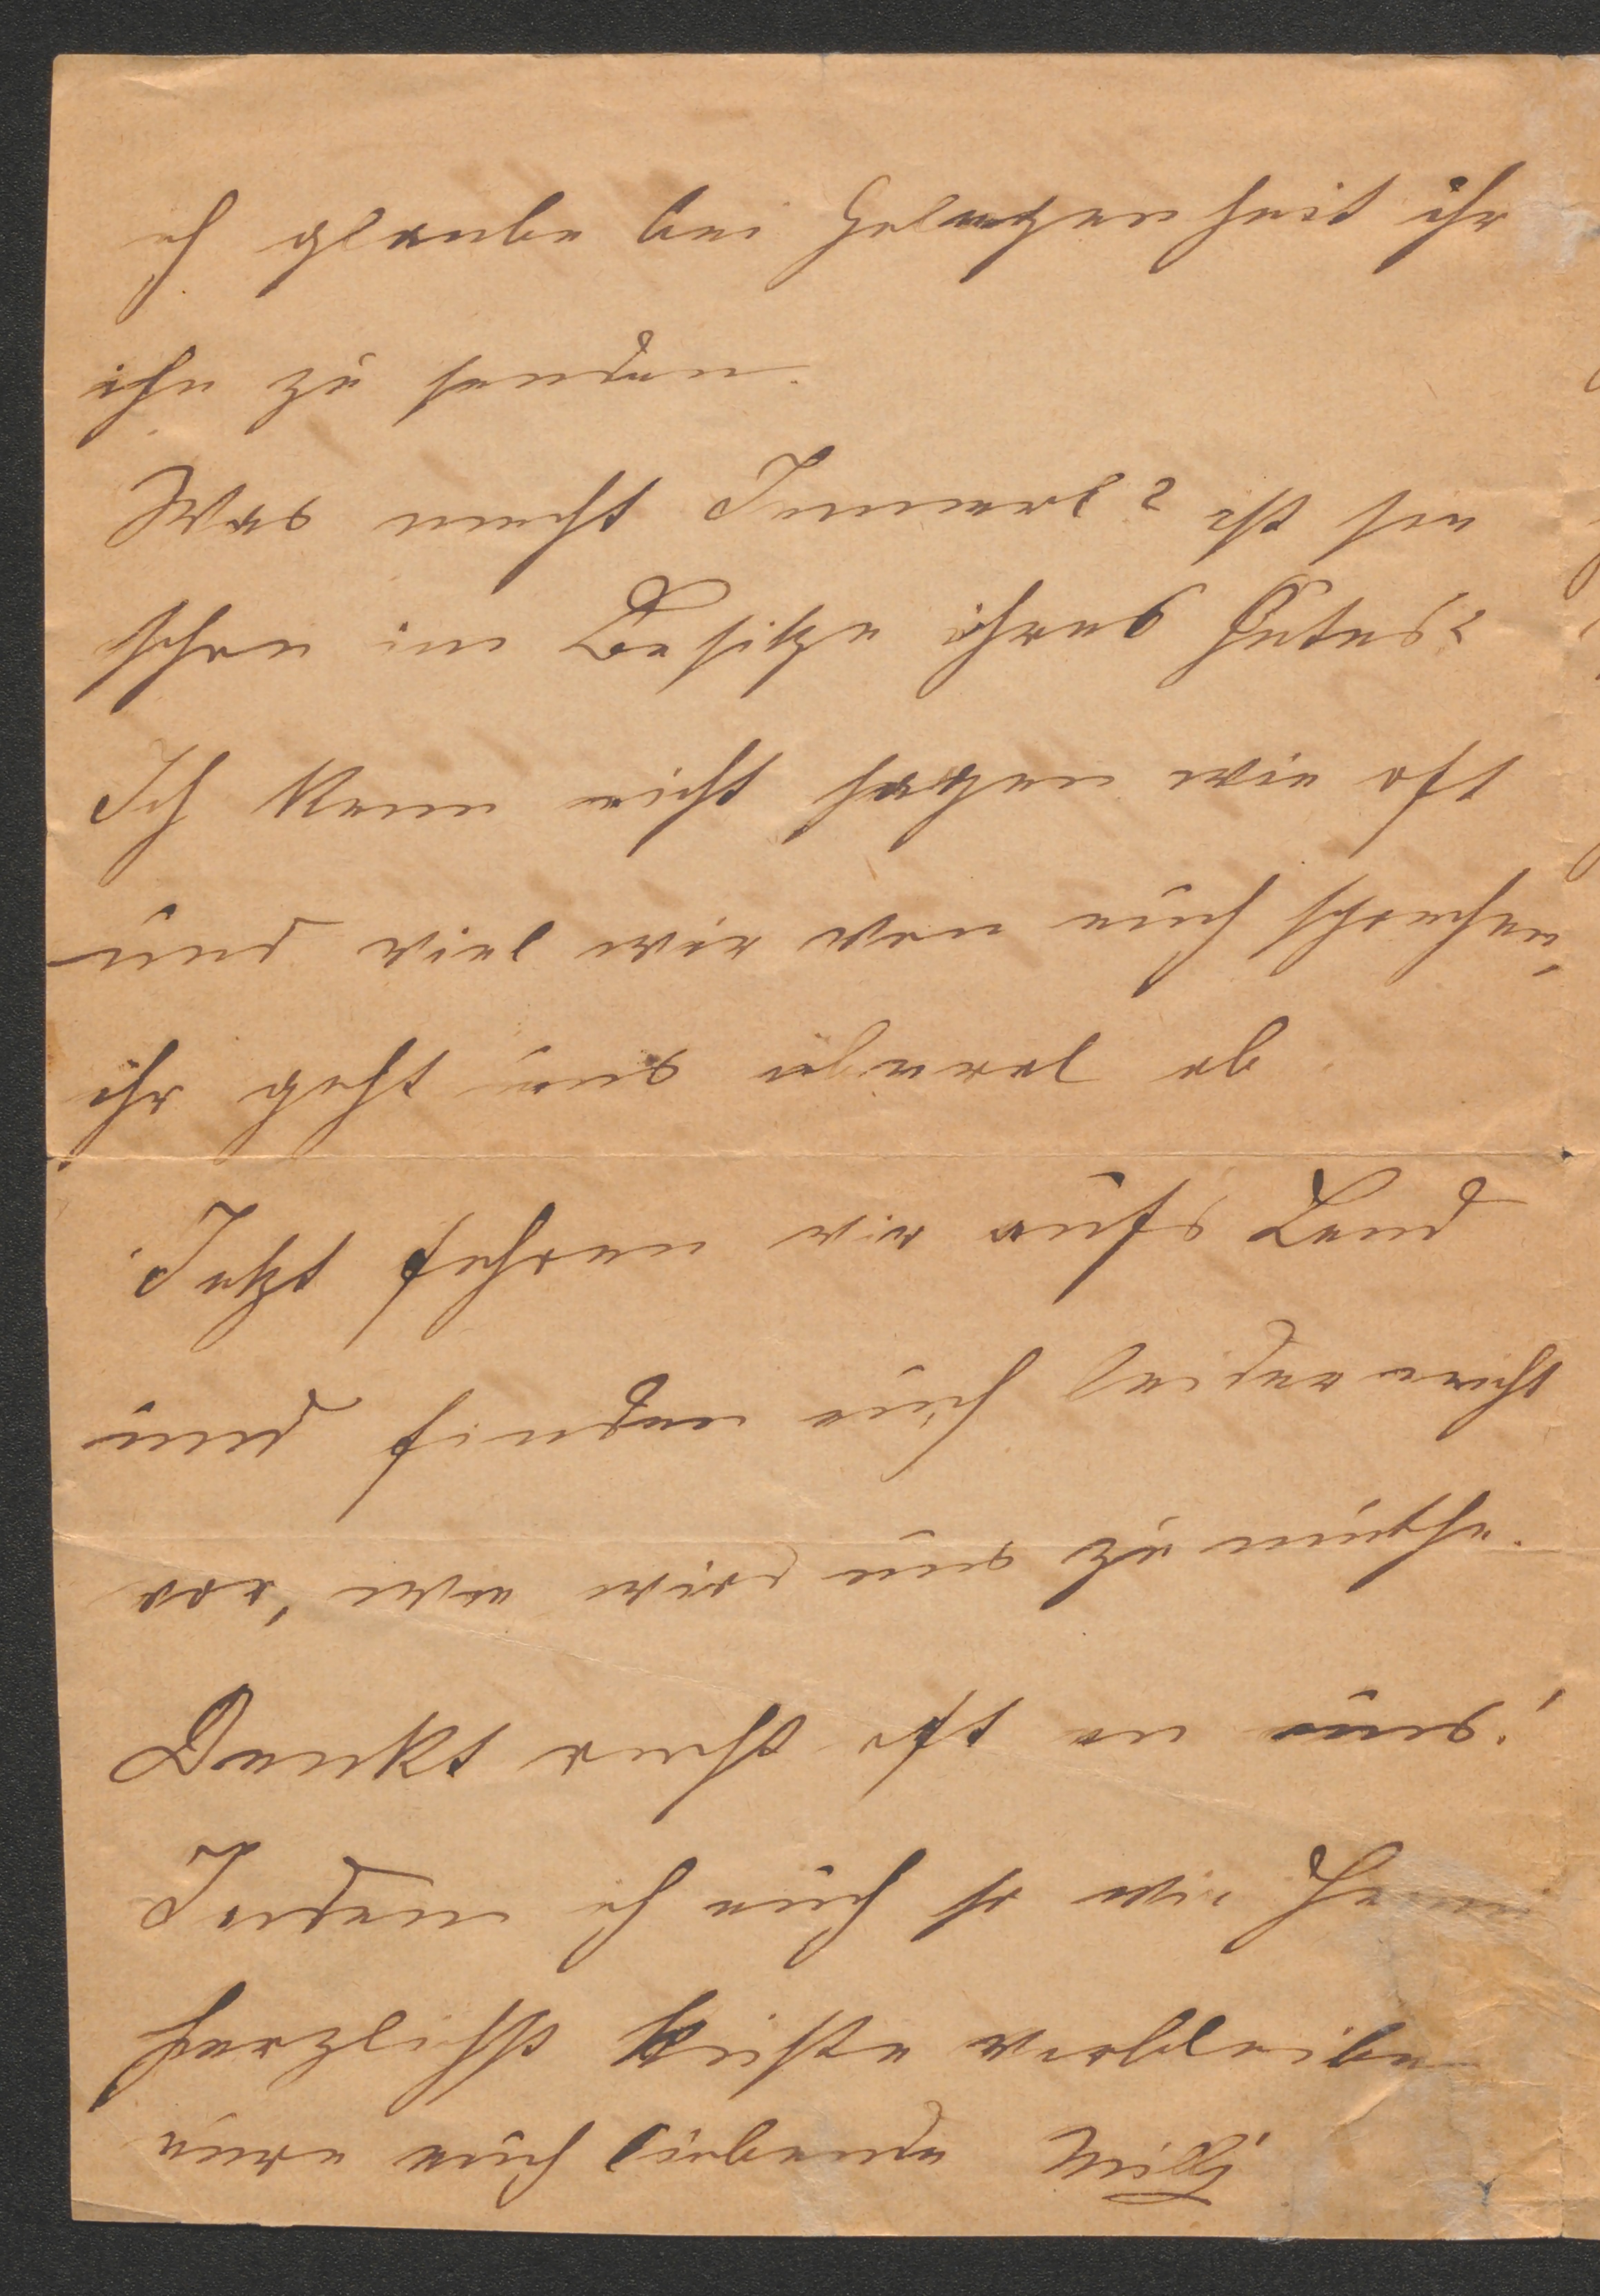 ich glaube bei Gelegenheit ihr
ihn zu senden.
Was macht ist sie
schon im Besitze ihres Hutes?
Ich kann nicht sagen wie oft
und viel wir von euch sprechen,
ihr geht uns überall ab.
Jetzt fahren wir aufs Land
und finden euch leider nicht
vor, wie wird uns zu muthe.
Denkt recht oft an uns!
Indem ich euch so wie
herzlichst küsse verbleibe
eure euch liebende Milli